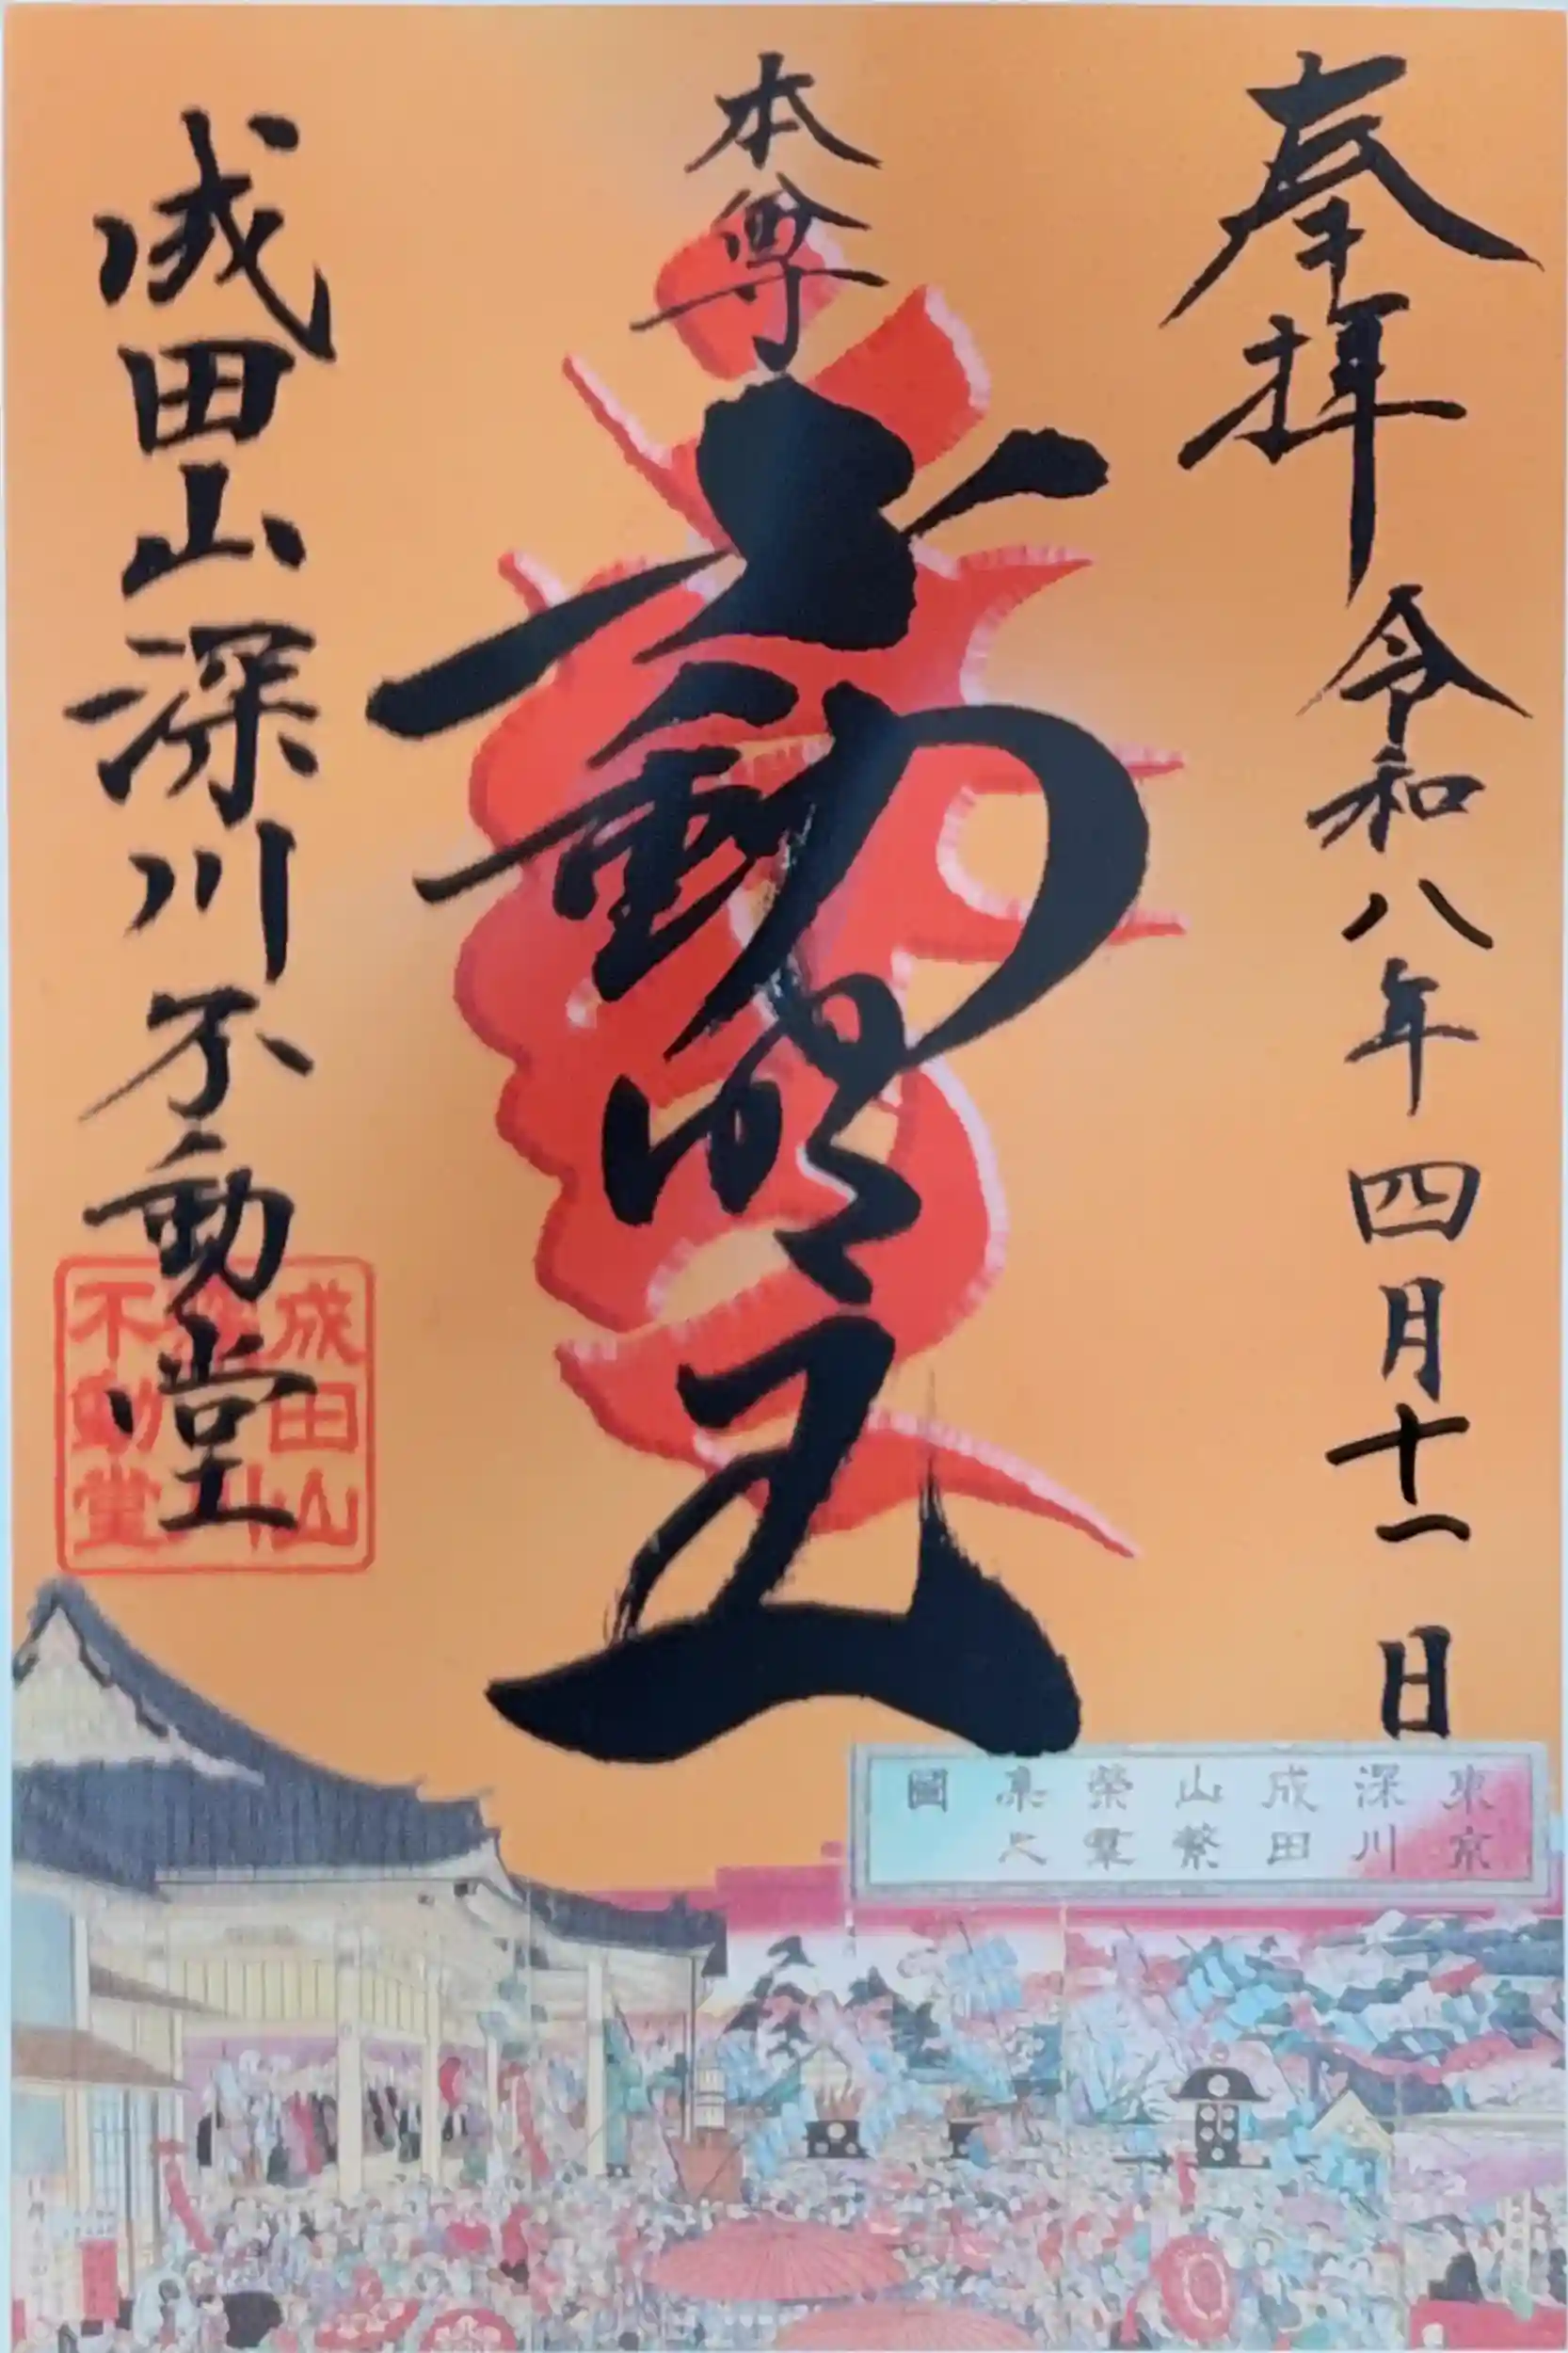 奉拝
令和八年四月十一日
本尊
不動明王
成田山深川不動堂
成田山
深川
不動堂
東京
深川
成田
山繁
榮羣
集之
圖